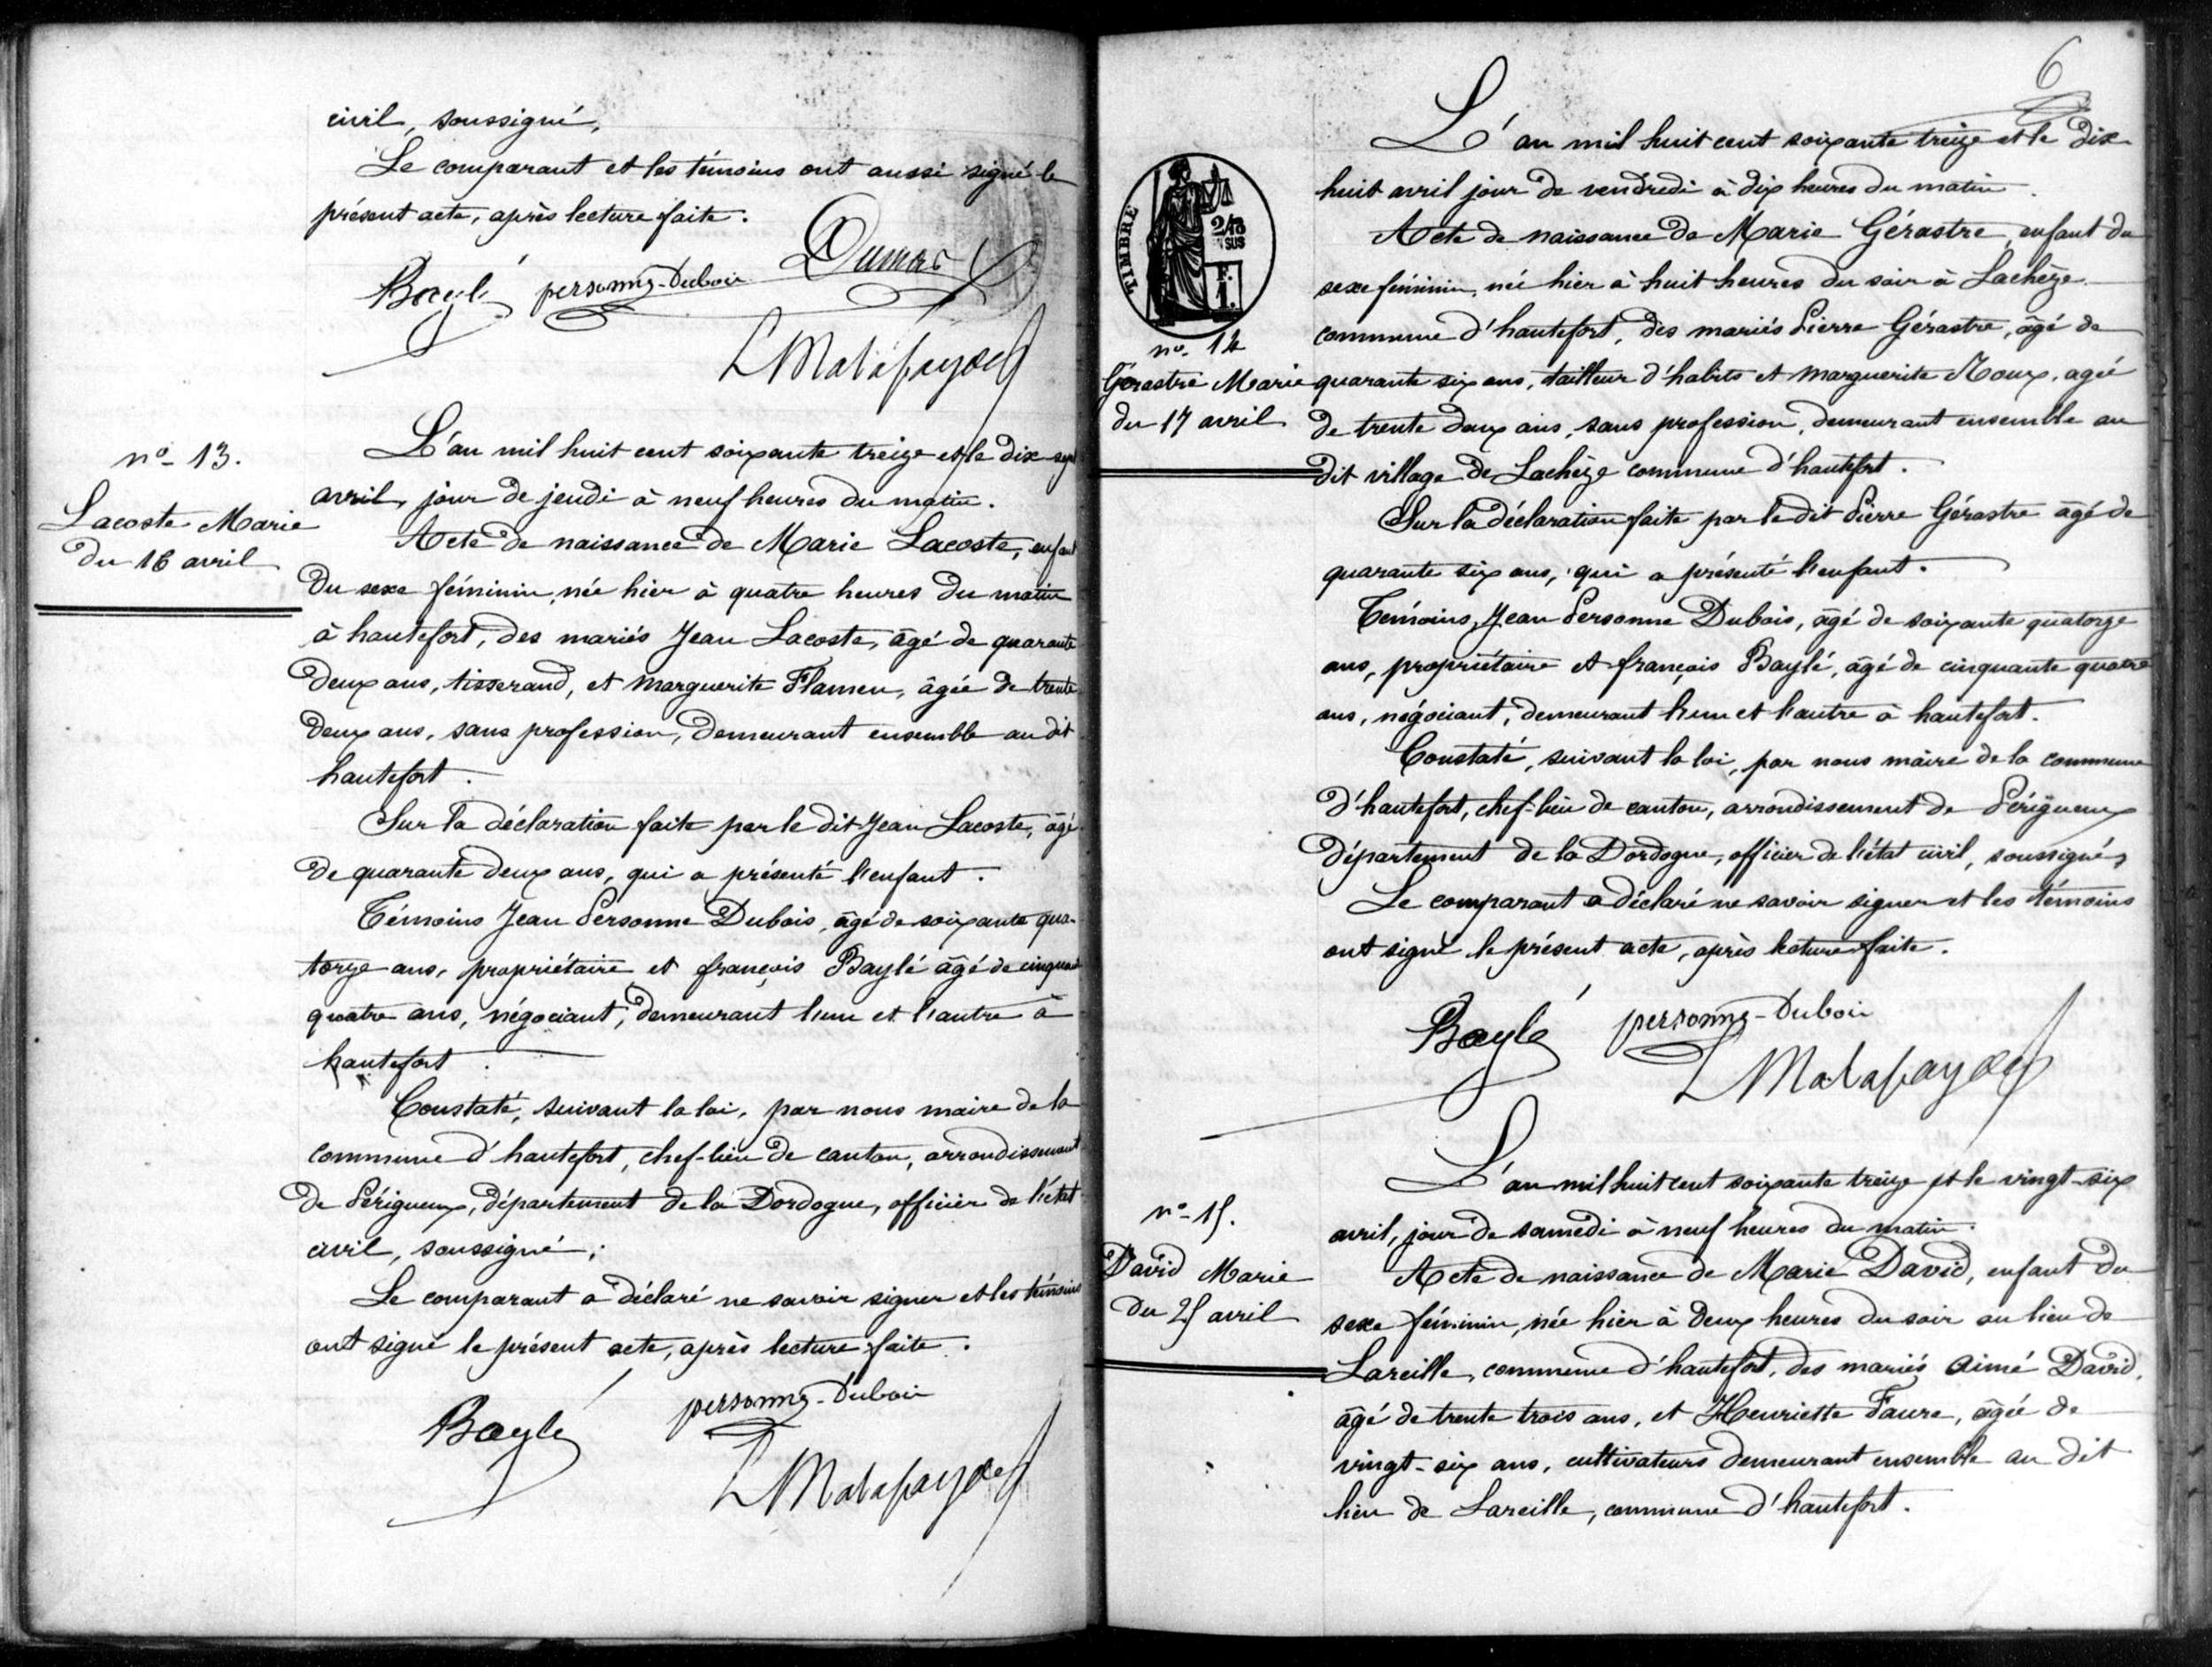 civil, soussigné,
Le comparant et les témoins ont aussi signé le
présent acte, après lecture faite.
Baylé personne-Dubois Dumas
L Malafayde
n° 13.
Lacoste Marie
du 16 avril
L'an mil huit cent soixante treize et le dix-sept
avril, jour de jeudi à neuf heures du matin.
Acte de naissance de Marie Lacoste, enfant
du sexe féminin, née hier à quatre heures du matin
à hautefort, des mariés Jean Lacoste, âgé de quarante
deux ans, tisserand, et Marguerite Flamen, âgée de trente
deux ans, sans profession, demeurant ensemble au dit
hautefort.
Sur la déclaration faite par le dit Jean Lacoste, âgé
de quarante deux ans, qui a présenté l'enfant.
Témoins Jean Personne Dubois, âgé de soixante qua-
torze ans, propriétaire et françois Baylé âgé de cinquante
quatre ans, négociant, demeurant l'un et l'autre à
hautefort.
Constaté, suivant la loi, par nous maire de la
commune d'hautefort, chef-lieu de canton, arrondissement
de Périgueux, département de la Dordogne, officier de l'état
civil, soussigné;
Le comparant a déclaré ne savoir signer et les témoins
ont signé le présent acte, après lecture faite.
Baylé personne-Dubois
L Malafayde
6
TIMBRE
2/10
SUS
F.
1.
n° 14
Gérastre Marie
du 17 avril
L'an mil huit cent soixante treize et le dix
huit avril jour de vendredi à dix heures du matin.
Acte de naissance de Marie Gérastre, enfant du
sexe féminin, née hier à huit heures du soir à Lachèze
commune d'hautefort, des mariés Pierre Gérastre, âgé de
quarante six ans, tailleur d'habits et Marguerite Roux, agée
de trente deux ans, sans profession, demeurant ensemble au
dit village de Lachèze commune d'hautefort.
Sur la déclaration faite par le dit Pierre Gérastre âgé de
quarante six ans, qui a présenté l'enfant.
Témoins, Jean Personne Dubois, âgé de soixante quatorze
ans, propriétaire et françois Baylé, âgé de cinquante quatre
ans, négociant, demeurant l'un et l'autre à hautefort.
Constaté, suivant la loi, par nous maire de la commune
d'hautefort, chef-lieu de canton, arrondissement de Périgueux
département de la Dordogne, officier de l'état civil, soussigné,
Le comparant a déclaré ne savoir signer et les témoins
ont signé le présent acte, après lecture faite.
Baylé personne-Dubois
L Malafayde
n° 15.
David Marie
du 25 avril
L'an mil huit cent soixante treize et le vingt-six
avril, jour de samedi à neuf heures du matin.
Acte de naissance de Marie David, enfant du
sexe féminin, née hier à deux heures du soir au lieu de
Lareille, commune d'hautefort, des mariés Aimé David,
âgé de trente trois ans, et Henriette Faure, âgée de
vingt-six ans, cultivateurs demeurant ensemble au dit
lieu de Lareille, commune d'hautefort.